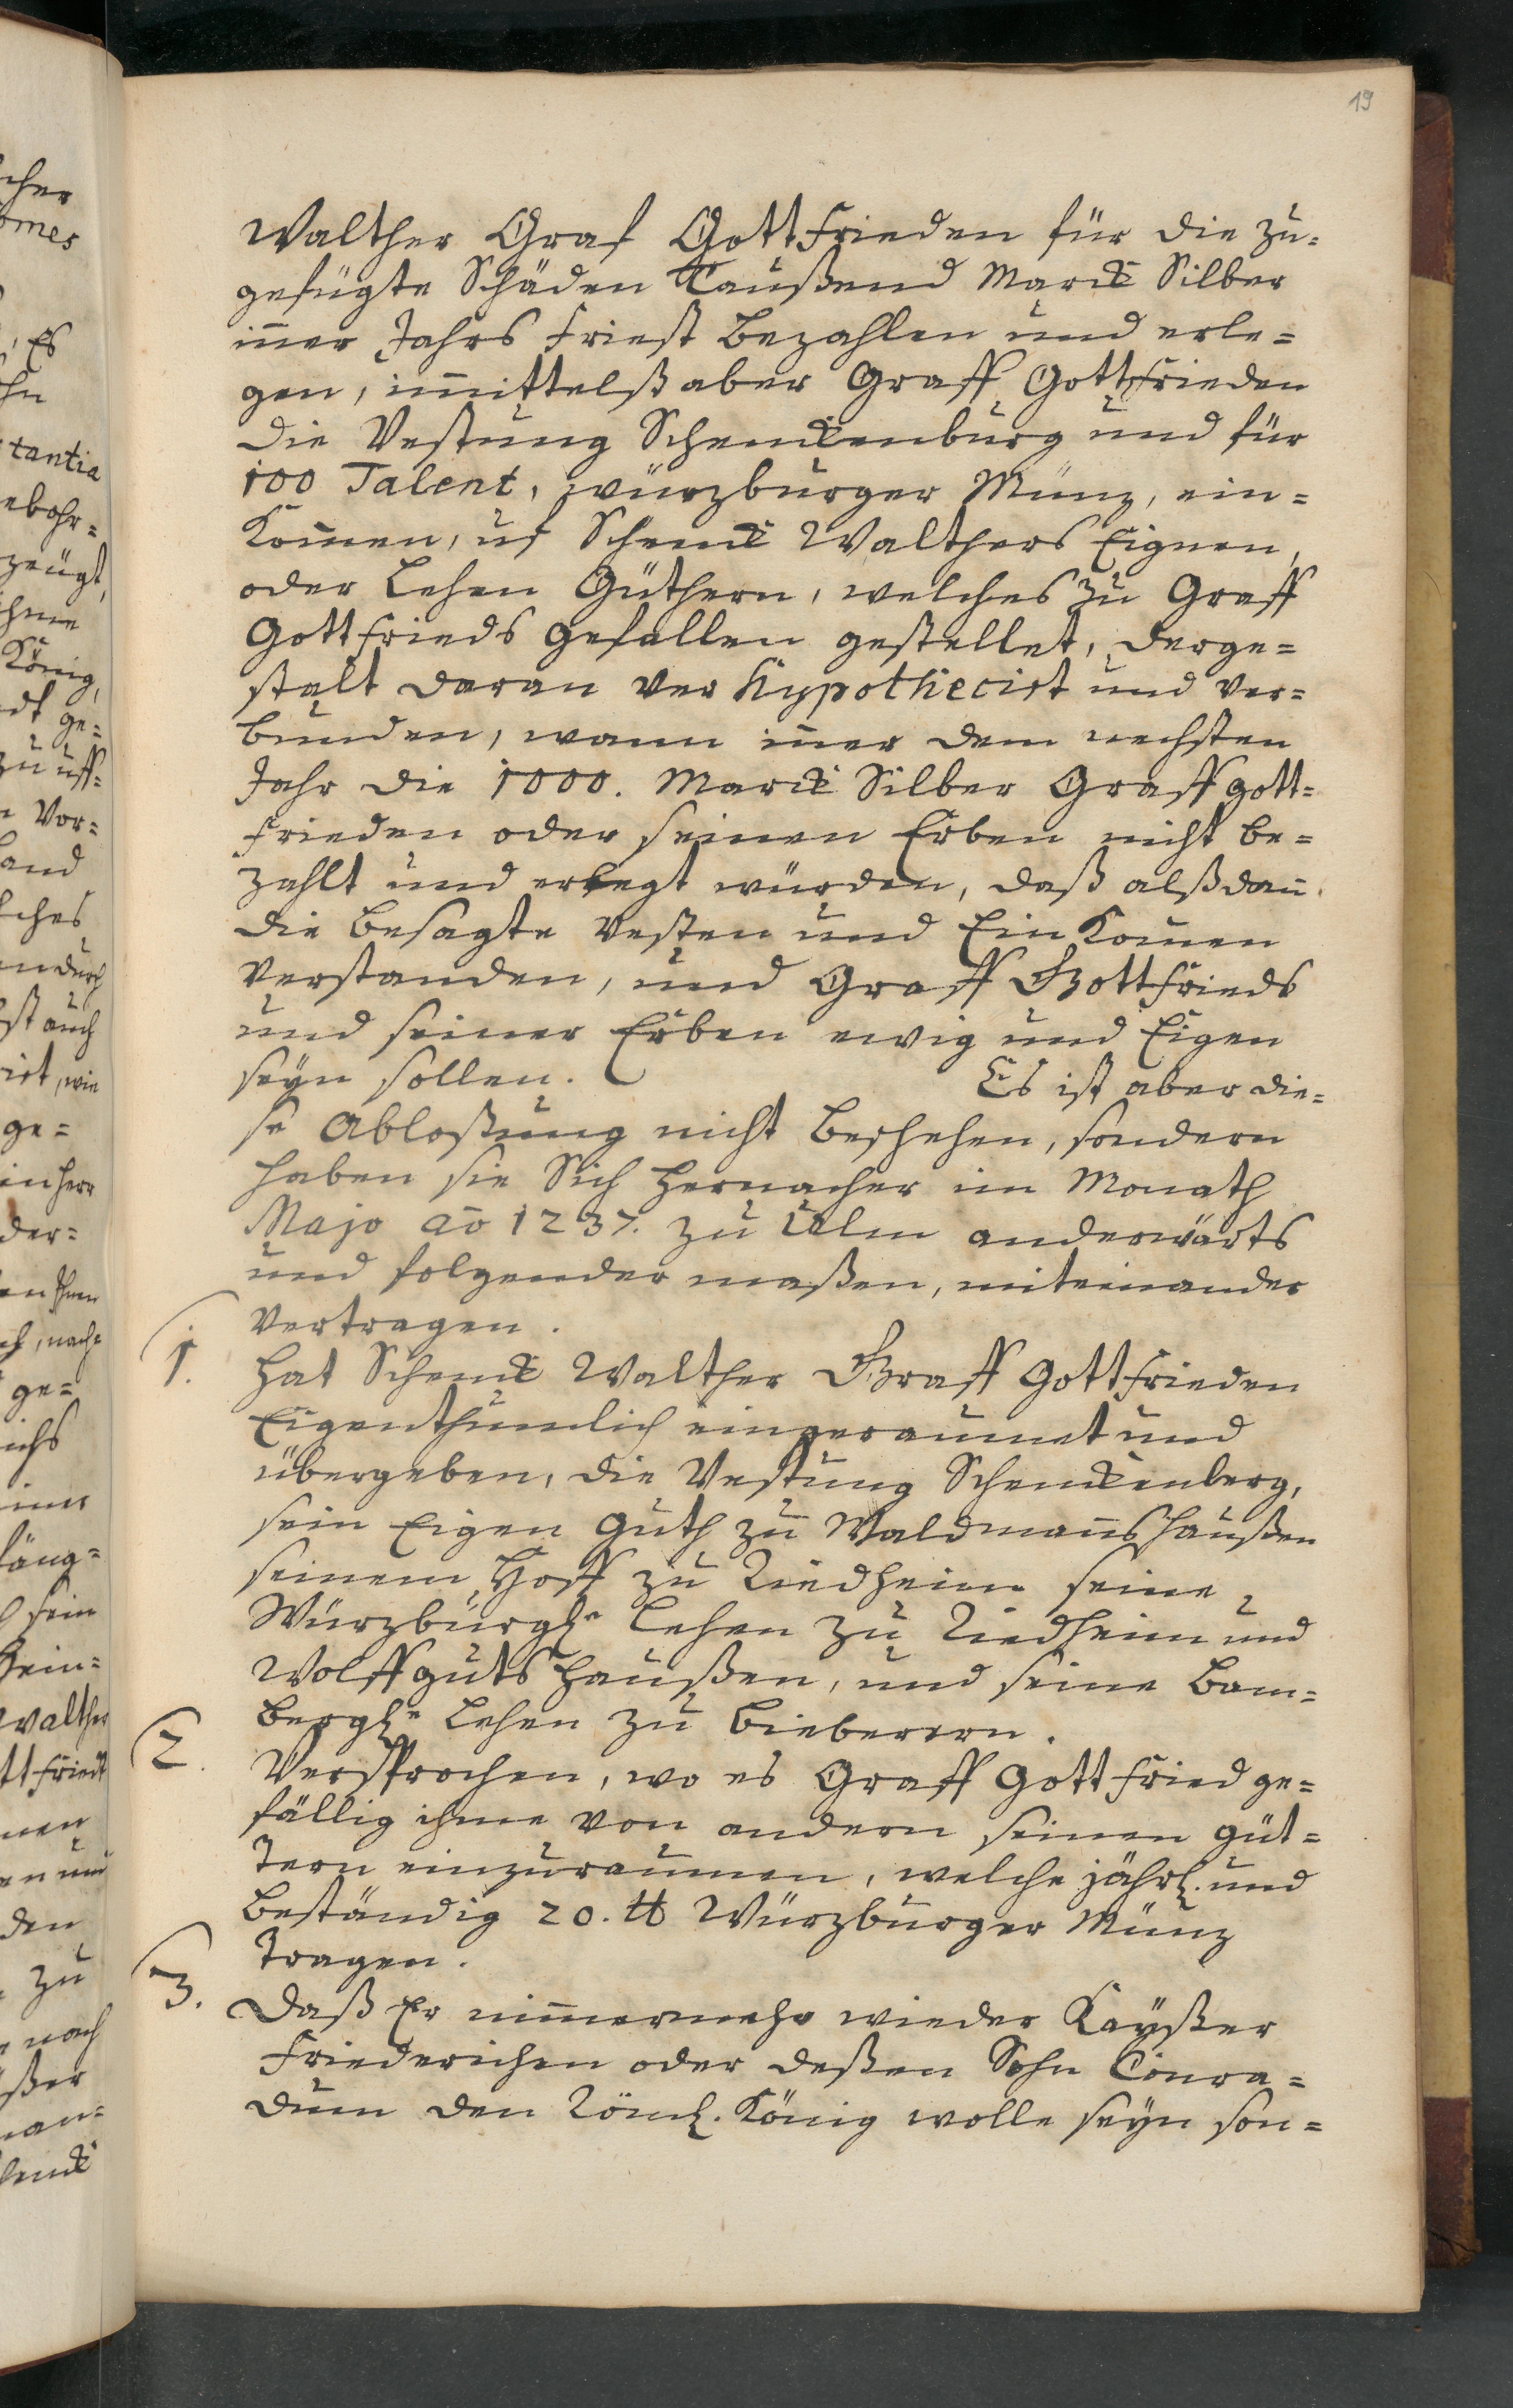 19
Walther Graf Gottfrieden für die zu=
gefügte Schäden Taußend Marck Silber
iñer Jahrs Friest bezahlen und erle=
gen, im̃ittelß aber Graff Gottfrieden
die Vestung Schenckenburg und für
100 Talent, würzburger Münz, ein=
Kom̃en, uf Schenck Walthers Eignen,
oder Lehen Güthern, welches zu Graff
Gottfrieds gefallen gestellet, derge=
stalt daran ver hypothecirt und ver=
bunden, wann iñer dem nechsten
Jahr die 1000. Marck Silber Graff gott=
frieden oder seinen Erben nicht be=
zahlt und erlegt würden, daß alßdañ
die besagte Vesten und Ein Kom̃en
verstanden, und Graff Gottfrieds
und seiner Erben ewig und Eigen
seyn sollen. Es ist aber die=
se Abloßung nicht beschehen, sondern
haben sie Sich hernacher im Monath
Majo aõ 1237. zu Ulm anderwärts
und folgender maßen, miteinander
vertragen.
1. Hat Schenck Walther Graff Gottfrieden
Eigenthumlich eingeraumet und
übergeben, die Vestung Schenckenberg,
sein Eigen Guth zu Waldmañshaußen
seinem Hoff zu Riedheim seine
Würzburgle Lehen zu Riedheim und
Wolffgutshaußen, und seine Bam=
bergle Lehen zu Bieberern.
2. Versprochen, wo es Graff Gottfried ge=
fällig ihme von andern seinen Güt=
tern einzuraumen, welche jährl. und
beständig 20. ℔ Würzburger Münz
tragen.
3. Daß Er nim̃ermehr wieder Kayßer
Friederichen oder deßen Sohn Conra=
dum den Röml. König wolle seyn son=